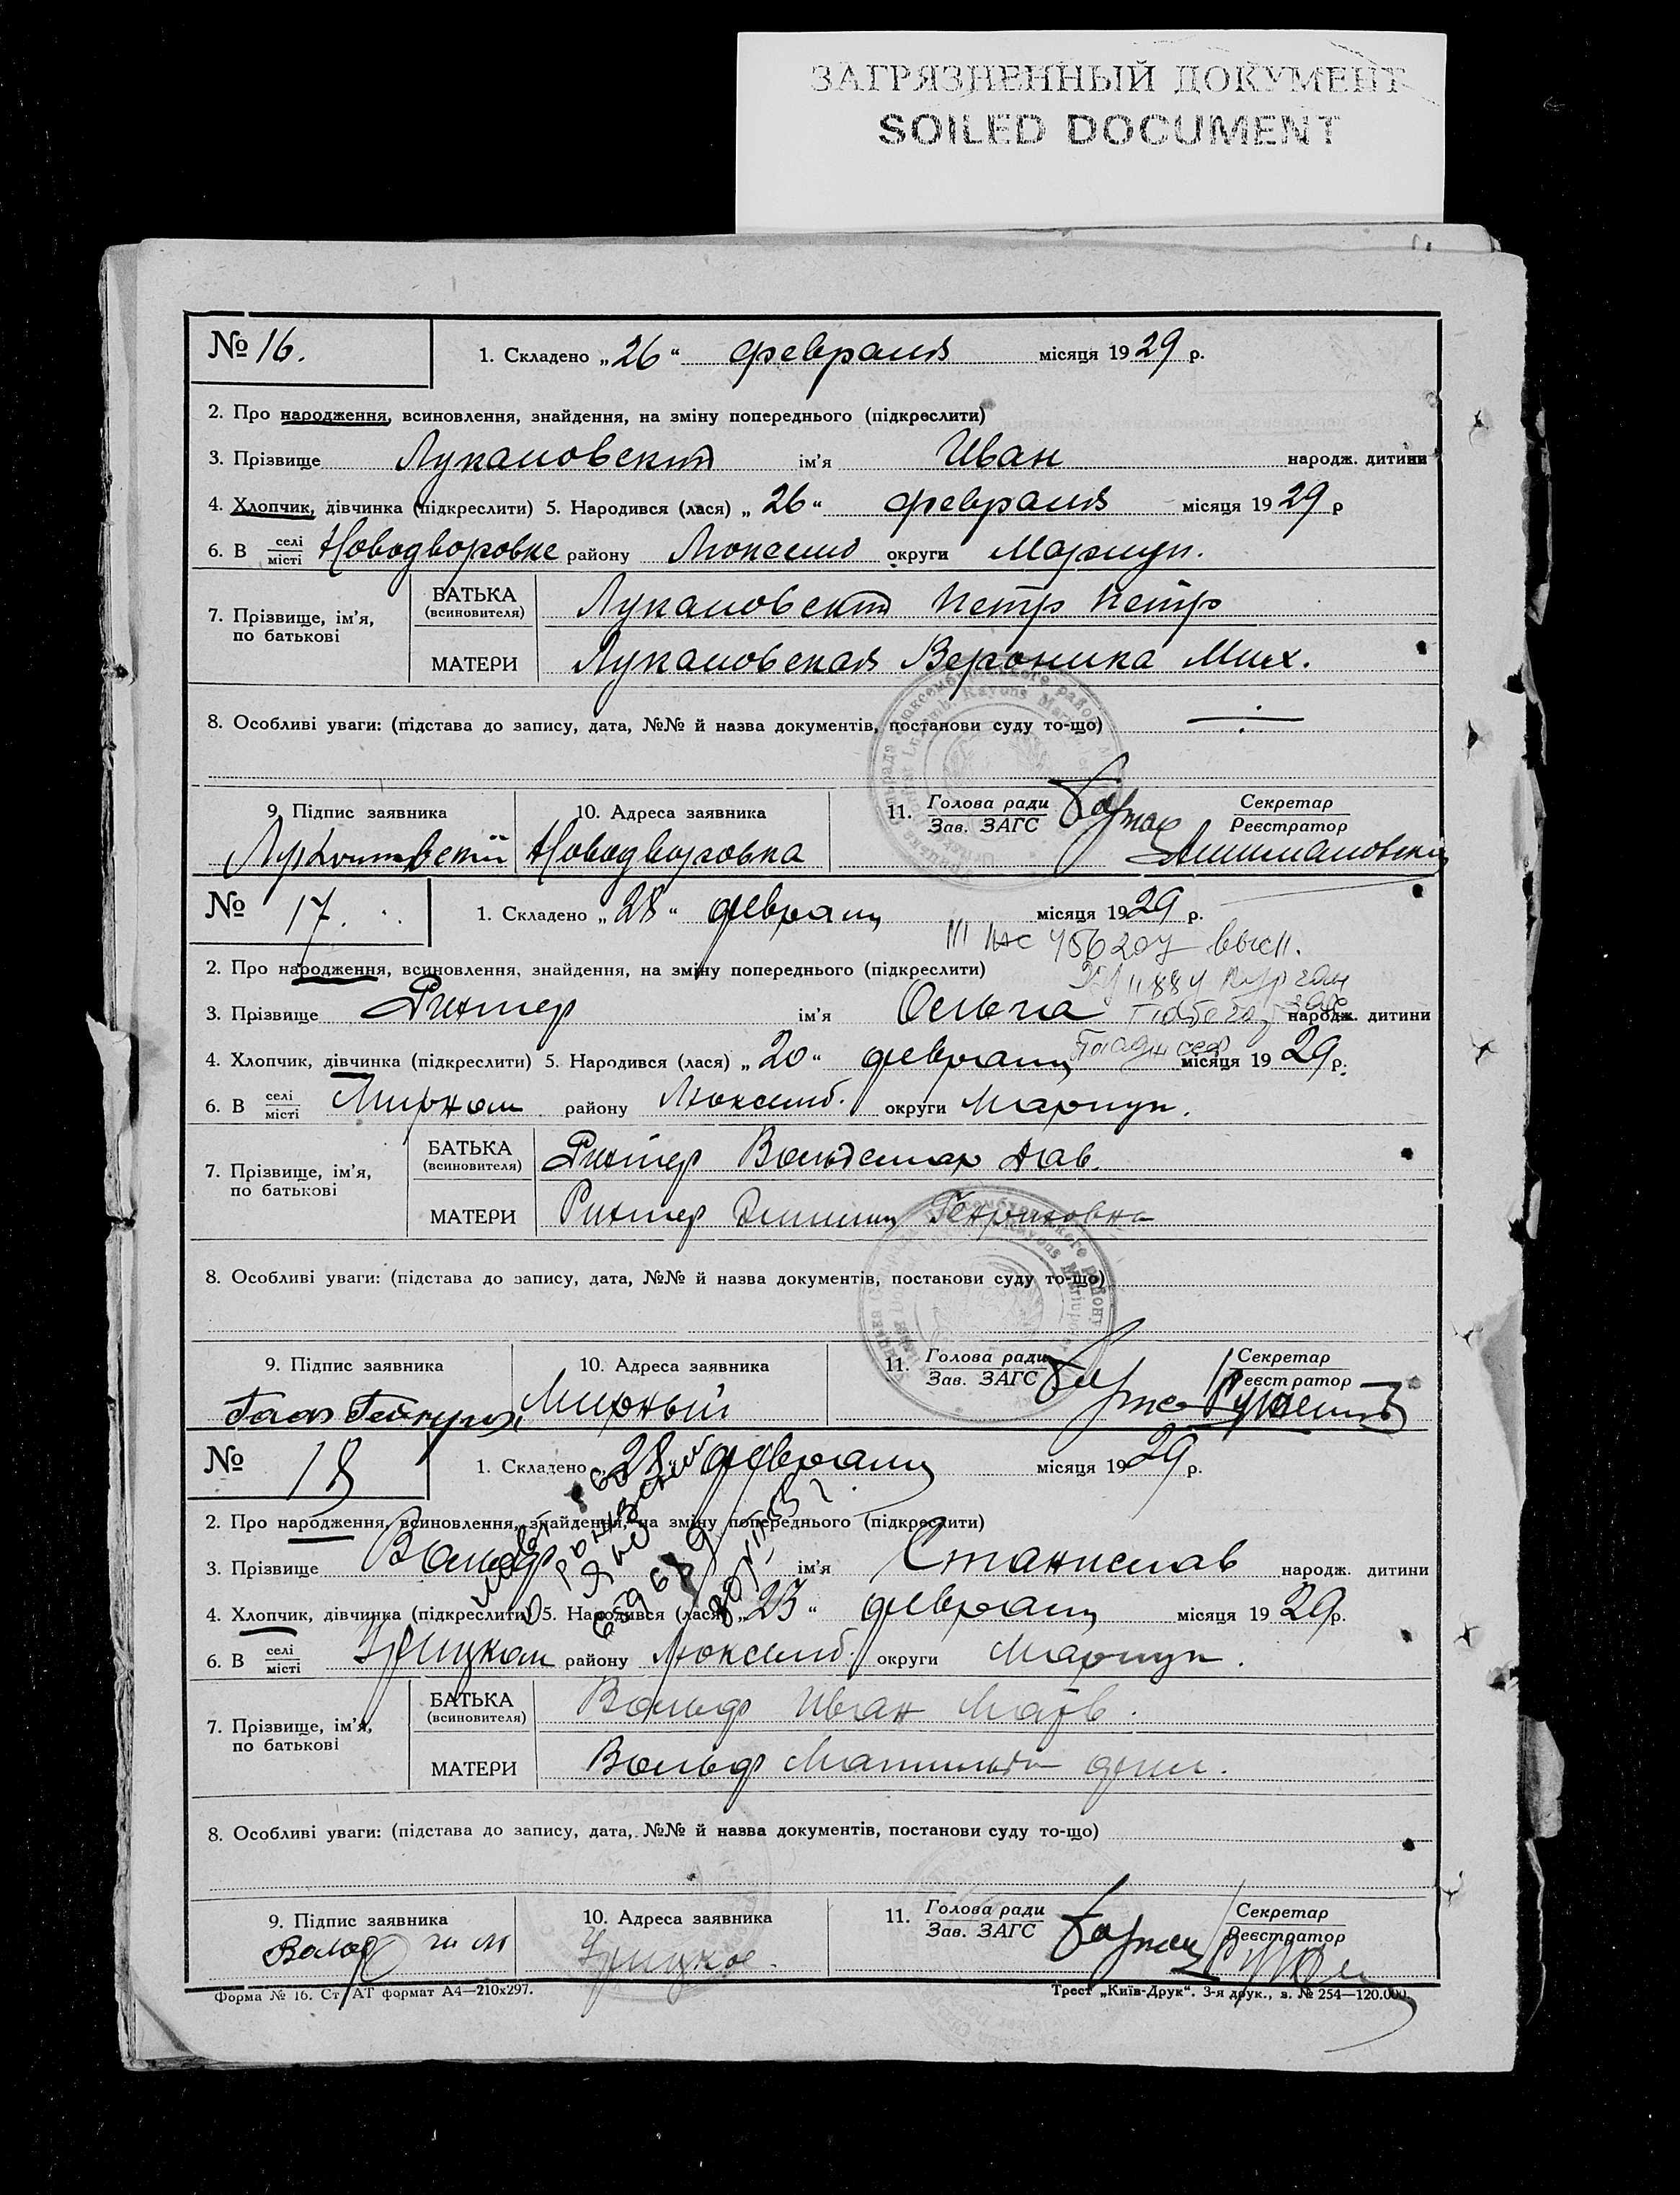 ЗАГРЯЗНЕННЫЙ ДОКУМЕНТ
SOILED DOCUMENT
№ 16. 1. Складено „26“ февраля місяця 1929 р.
2. Про народження, всиновлення, знайдення, на зміну попереднього (підкреслити)
3. Прізвище Лукановский ім’я Иван народж. дитини
4. Хлопчик, дівчинка (підкреслити) 5. Народився (лася) „26“ февраля місяця 1929 р
6. В селі місті Новодворовке району Люксемб округи Мариуп.
7. Прізвище, ім’я, по батькові БАТЬКА (всиновителя) Лукановский Петр Петр
МАТЕРИ Лукановская Вероника Мих.
8. Особливі уваги: (підстава до запису, дата, №№ й назва документів, постанови суду то-що)
9. Підпис заявника 10. Адреса заявника 11. Голова ради Зав. ЗАГС Секретар Реєстратор
Новодворовка
№ 17. 1. Складено „28“ февраля місяця 1929 р.
III 456207
2. Про народження, всиновлення, знайдення, на зміну попереднього (підкреслити)
3. Прізвище Рихтер ім’я Ольга народж. дитини
4. Хлопчик, дівчинка (підкреслити) 5. Народився (лася) „20“ февраля місяця 1929 р.
6. В селі місті Мирном району Люксемб. округи Мариуп.
7. Прізвище, ім’я, по батькові БАТЬКА (всиновителя) Рихтер Вольдемар
МАТЕРИ Рихтер Генриховна
8. Особливі уваги: (підстава до запису, дата, №№ й назва документів, постанови суду то-що)
9. Підпис заявника 10. Адреса заявника 11. Голова ради Зав. ЗАГС Секретар Реєстратор
Гааз Мирный
№ 18 1. Складено 28 февраля місяця 1929 р.
2. Про народження, всиновлення, знайдення, на зміну попереднього (підкреслити)
3. Прізвище Вольф ім’я Станислав народж. дитини
4. Хлопчик, дівчинка (підкреслити) 5. Народився (лася) „23“ февраля місяця 1929 р.
6. В селі місті Урицком району Люксемб. округи Мариуп.
7. Прізвище, ім’я, по батькові БАТЬКА (всиновителя) Вольф Иван Матв.
МАТЕРИ Вольф Матильда
8. Особливі уваги: (підстава до запису, дата, №№ й назва документів, постанови суду то-що)
9. Підпис заявника 10. Адреса заявника 11. Голова ради Зав. ЗАГС Секретар Реєстратор
Вольф Урицкое.
Форма № 16. Ст. АТ формат А4—210х297. Трест „Київ-Друк“. 3-я друк., з. № 254—120.000.